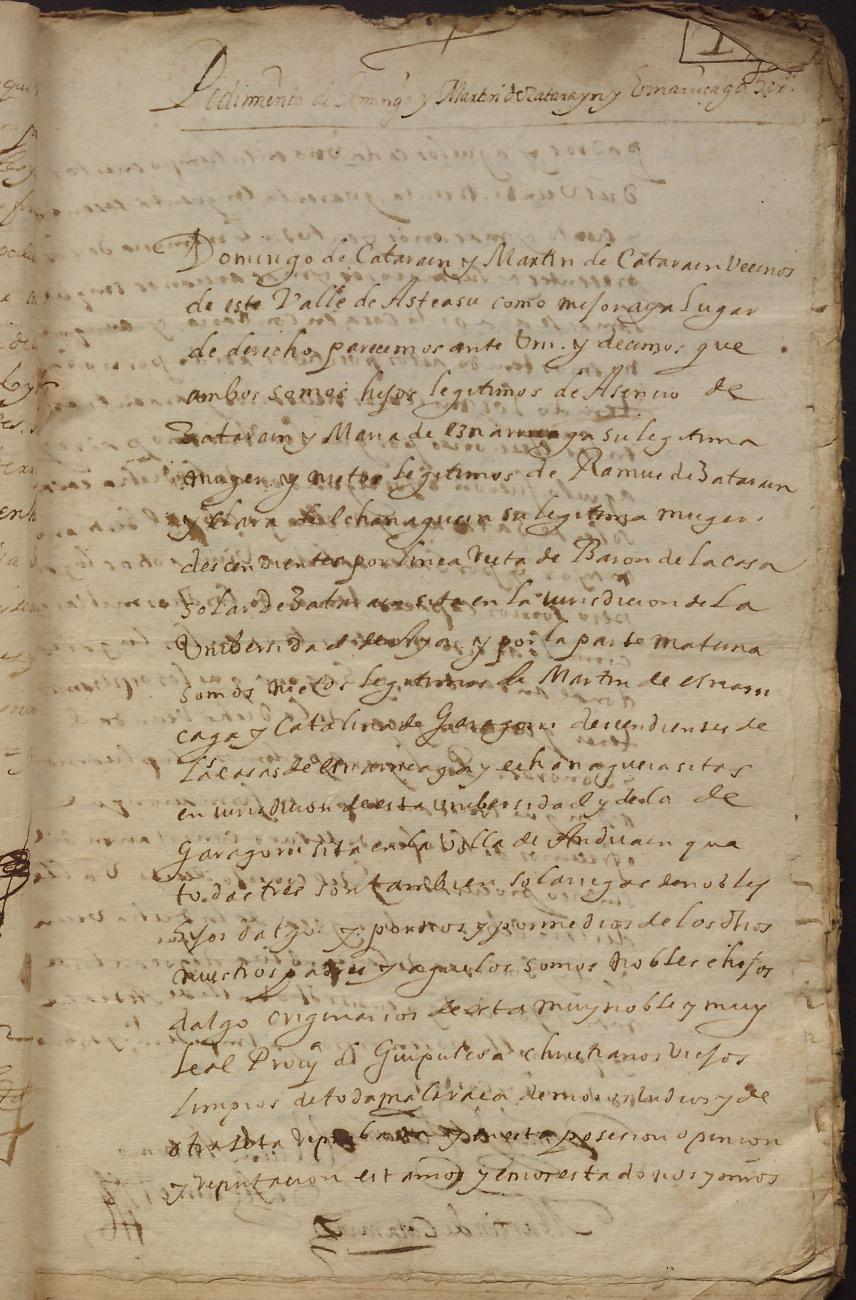 1
Pedimento de Domingo y Martin de Zatarayn y
Domingo de Catarain y Martin de Catarain Vecinos
de este Valle de Asteasu como mejor aya Lugar
de derecho parecemos ante Vm. y decimos que
ambos somos hijos legitimos de Asencio de
Zatarain y Maria de esnarriaga su legitima
muger y nietos legitimos de Ramus de Zatarain
y Clara de echanaguein su legitima muger.
descendientes por linea Recta de Baron de la casa
solar de Zatarain sita en la iurisdicion de La
Vnibersidad de Aya y por la parte materna
somos nietos legitimos de Martin de esnarri
caga y Catalina de Garagorri descendientes de
Las casas de y echanagueia sitas
en iurisdicion de esta unibersidad y de la de
Garagorri sita en la Villa de Anduain que
todas tres son tambien solariegas de nobles
hijos dalgo y por nos y por medios de los dhos
nuestros padres y aguelos somos Nobles e hijos
dalgo originarios de esta muy noble y muy
Leal Provª de Guipuscoa christianos viejos
Limpios de toda mala raça de moros Iudios y de
otra seta reprobada y en esta posesion opinion
y reputacion estamos y emos estado nos y